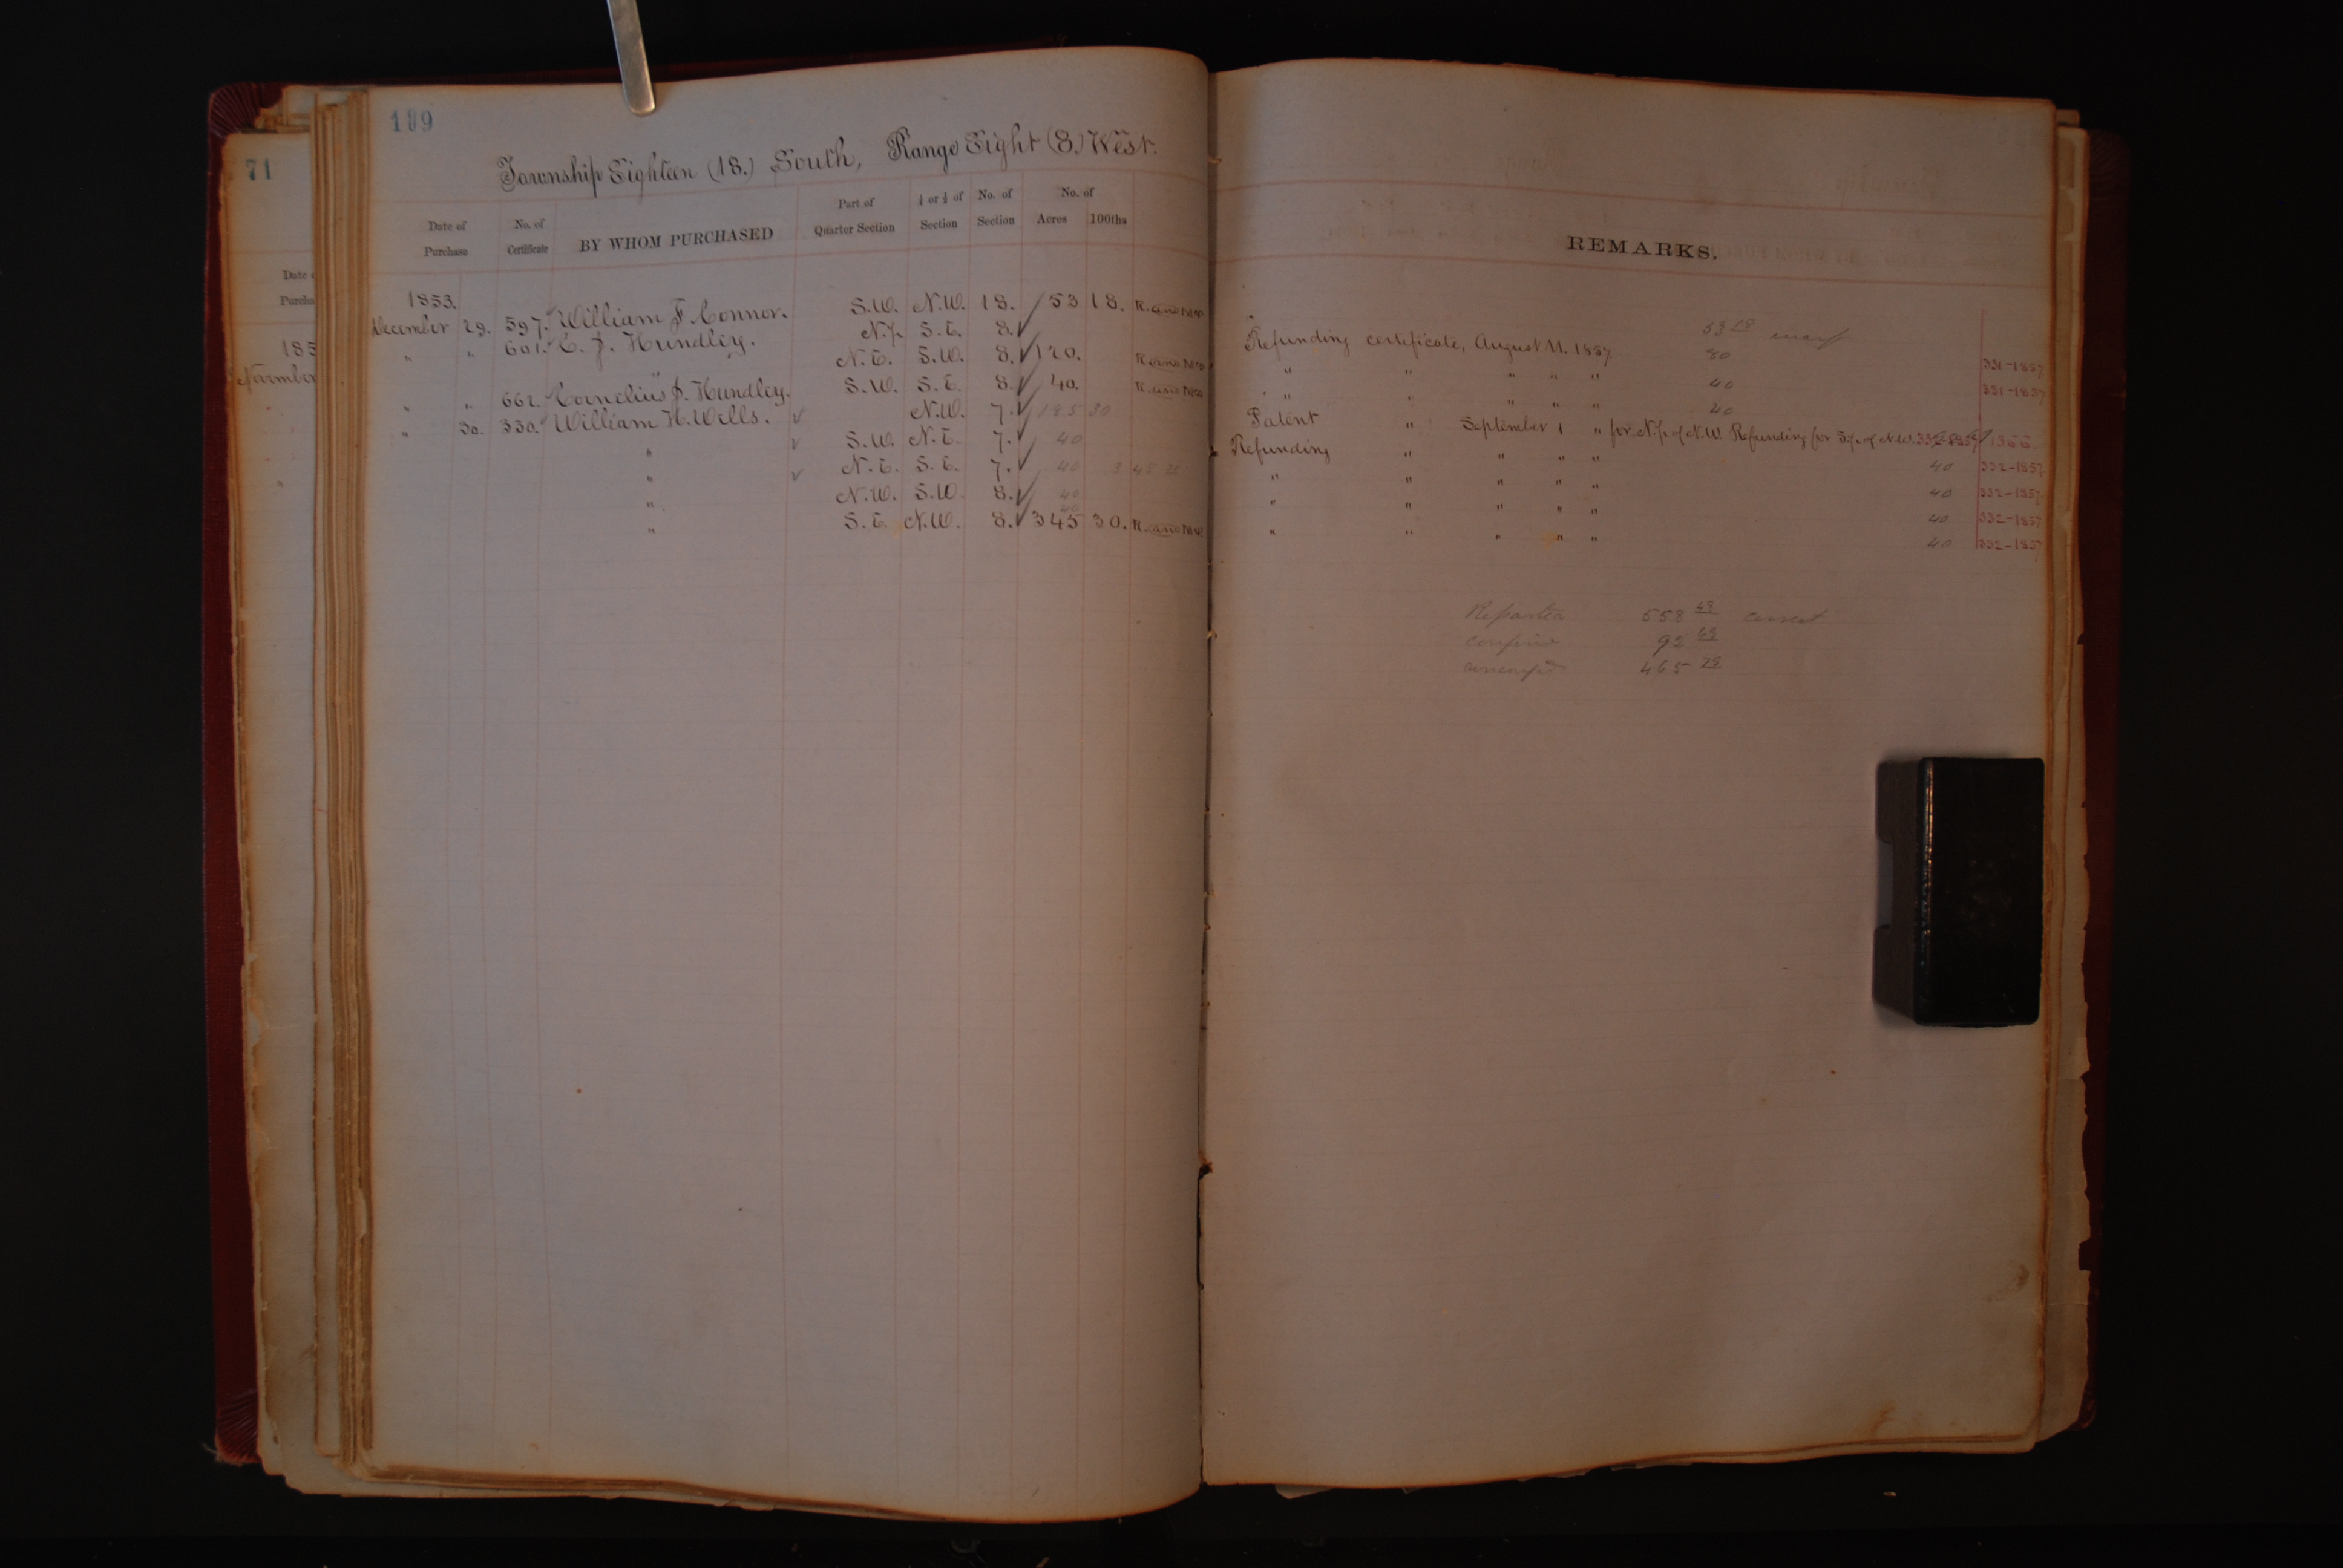 189
71
Township Eighteen (18.) South, Range Eight (8.) West.
Date of Purchase No. of Certificate BY WHOM PURCHASED Part of Quarter Section Section No. of Section No. of Acres 100ths
REMARKS.
Date
Purcha
185
November
1853.
December 29. 597. William F. Connor. S.W. N.W. 18. 53 18. R. and
" " 601. C. J. Hundley. N.½ S.E. 8. Refunding certificate, August 11. 1857 80 331-1857
" N.E. S.W. 8. 120. R. and " " " " " 40 331-1857
" " 662. Cornelius J. Hundley. S.W. S.E. 8. 40. R. and " " " " " 40
" 30. 330. William H. Wells. N.W. 7. 185 30 Patent " September 1 " for N.½ of N.W. Refunding for S.½ of N.W.
" S.W. N.E. 7. 40 Refunding " " " " 40 332-1857
" N.E. S.E. 7. 40 " " " " " 40 332-1857
" N.W. S.W. 8. 40 " " " " " 40 332-1857
" S.E. N.W. 8. 345 30. R. and " " " " " 40 332-1857
53 18
558 48 correct
92 69
465 79